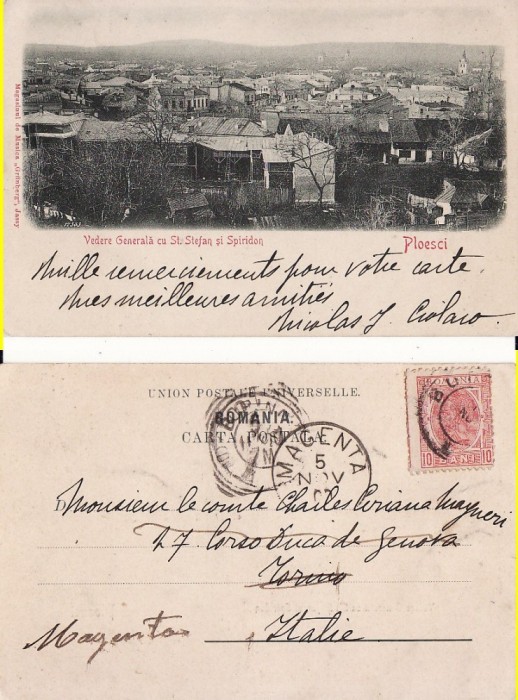 Magasinul de Musica „Grünberg", Jassy
Vedere Generală cu St. Stefan și Spiridon
Ploesci
Mille remerciements pour votre carte.
Mes meilleures amitiés
Nicolas J.
UNION POSTALE UNIVERSELLE.
ROMANIA.
CARTA POSTALA
MAGENTA
5
NOV
ROMANIA
10 BANI 10
Monsieur le comte Charles
27 Corso Duca de Genova
Torino
Magenta
Italie